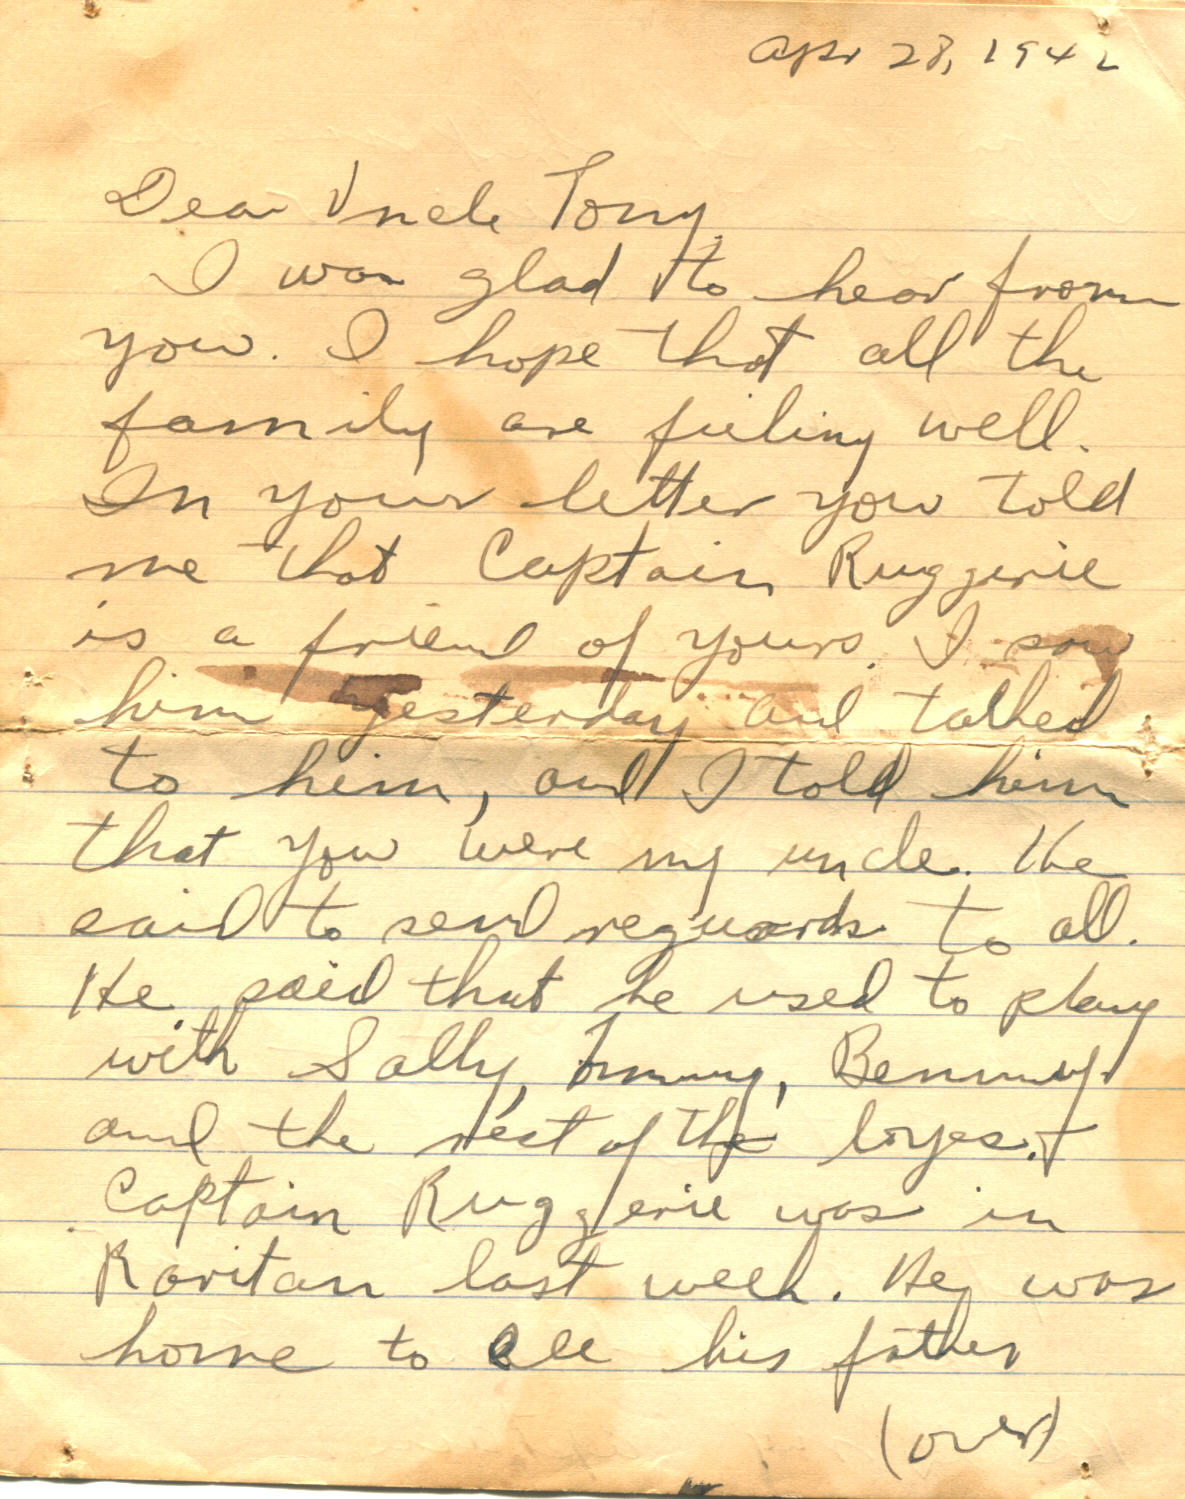 Apr 28, 1942
Dear Uncle Tony,
I was glad to hear from
you. I hope that all the
family are fieling well.
In your letter you told
me that Captain Ruggerie
is a friend of yours. I saw
him yesterday and talked
to him, and I told him
that you were my uncle. He
said to send reguards to all.
He said that he used to play
with Sally, Tommy, Benny
and the rest of the boyes.
Captain Ruggerie was in
Raritan last week. He was
home to see his father
(over)